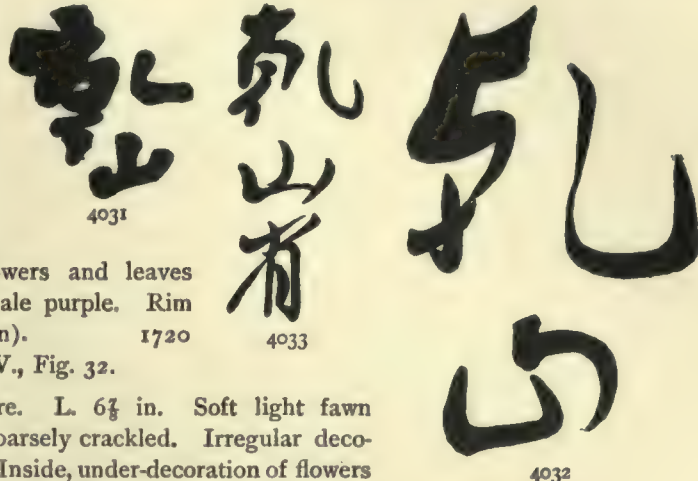 乾山
4031
乾山省
4033
乾山
4032
wers and leaves
ale purple. Rim
n). 1720
V., Fig. 32.
re. L. 6⅞ in. Soft light fawn
parsely crackled. Irregular deco-
Inside, under-decoration of flowers